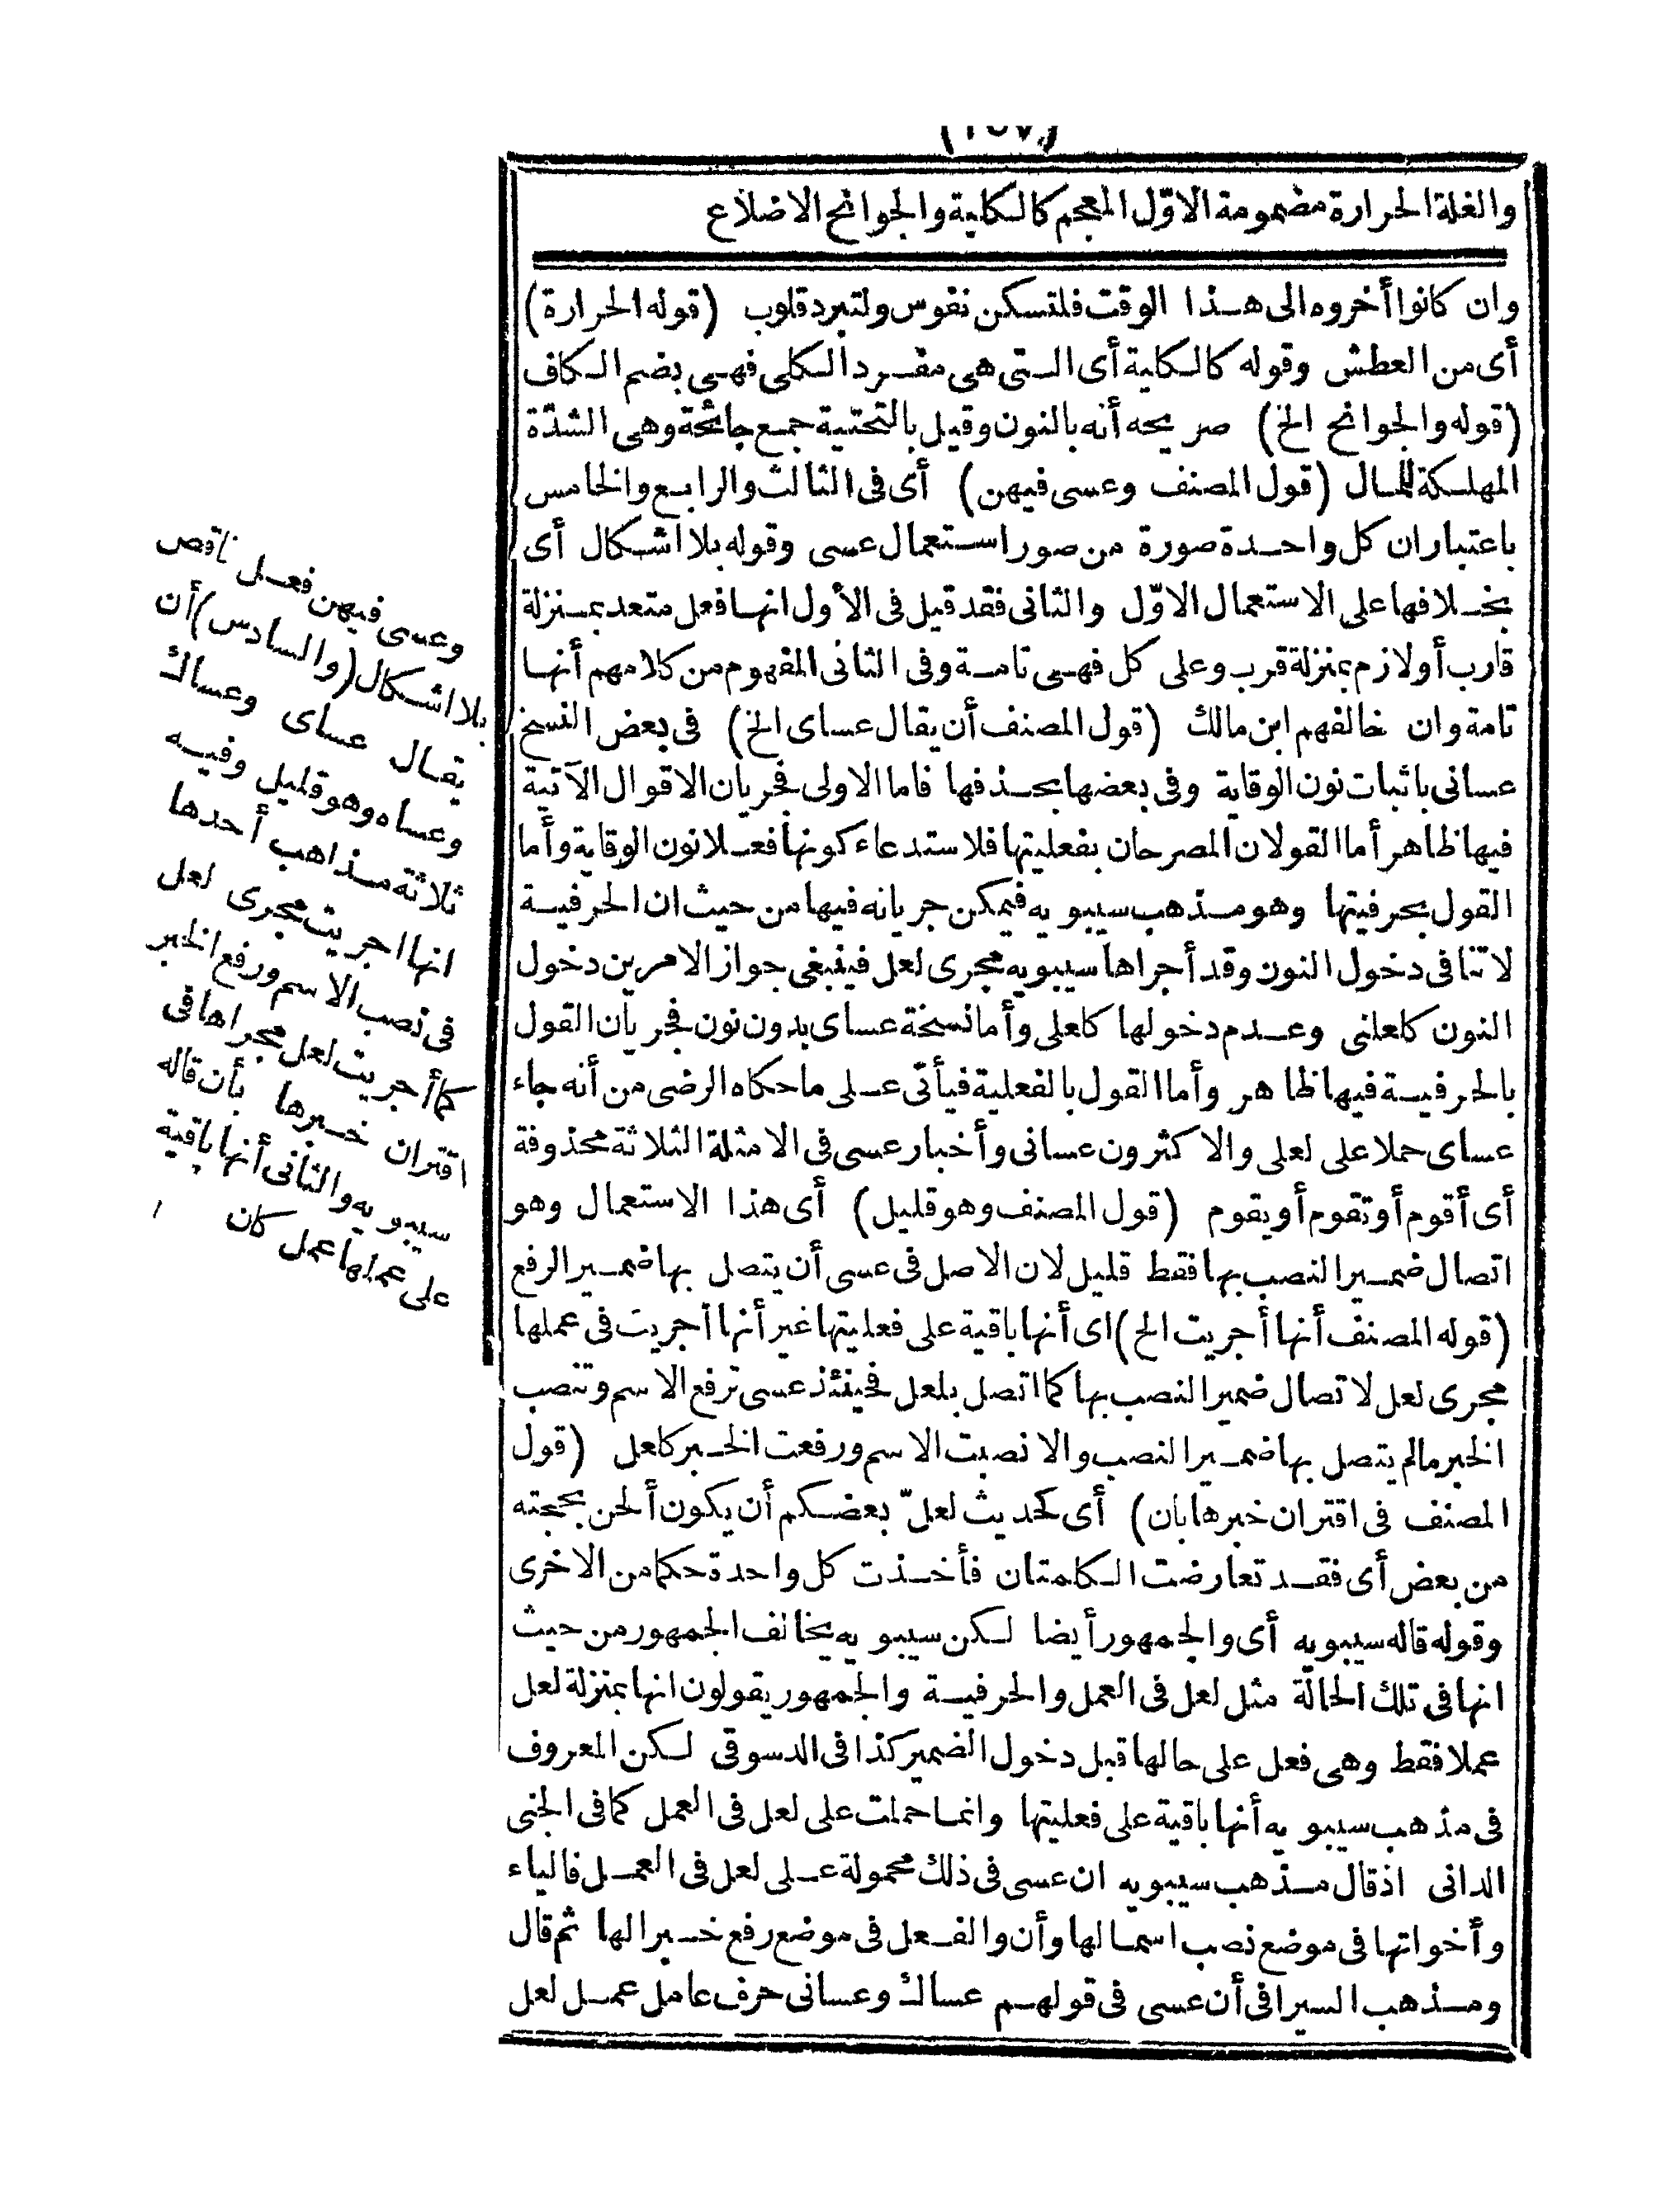 والغلة الحرارة مضمومة الاوّل المعجم كالكلية والجوانح الاضلاع
وان كانوا أخروه الى هذا الوقت فلتسكن نفوس ولتبرد قلوب (قوله الحرارة)
أى من العطش وقوله كالكلية أى التى هى مفرد الكلى فهى بضم الكاف
(قوله والجوانح الخ) صريحه أنه بالنون وقيل بالتحتية جمع جائحة وهى الشدّة
المهلكة للمال (قول المصنف وعسى فيهن) أى فى الثالث والرابع والخامس
باعتبار ان كل واحدة صورة من صور استعمال عسى وقوله بلا اشكال أى
بخلافها على الاستعمال الاوّل والثانى فقد قيل فى الأول انها فعل متعد بمنزلة
قارب أو لازم بمنزلة قرب وعلى كل فهى تامة وفى الثانى المفهوم من كلامهم أنها
تامة وان خالفهم ابن مالك (قول المصنف أن يقال عساى الخ) فى بعض النسخ
عسانى باثبات نون الوقاية وفى بعضها بحذفها فاما الاولى فجريان الاقوال الآتية
فيها ظاهر أما القولان المصرحان بفعليتها فلاستدعاء كونها فعلا نون الوقاية وأما
القول بحرفيتها وهو مذهب سيبويه فيمكن جريانه فيها من حيث ان الحرفية
لا تنافى دخول النون وقد أجراها سيبويه مجرى لعل فينبغى جواز الامرين دخول
النون كلعلنى وعدم دخولها كلعلى وأما نسخة عساى بدون نون فجريان القول
بالحرفية فيها ظاهر وأما القول بالفعلية فيأتى على ما حكاه الرضى من أنه جاء
عساى حملا على لعلى والاكثرون عسانى وأخبار عسى فى الامثلة الثلاثة محذوفة
أى أقوم أو تقوم أو يقوم (قول المصنف وهو قليل) أى هذا الاستعمال وهو
اتصال ضمير النصب بها فقط قليل لان الاصل فى عسى أن يتصل بها ضمير الرفع
(قوله المصنف أنها أجريت الخ) اى أنها باقية على فعليتها غير أنها أجريت فى عملها
مجرى لعل لاتصال ضمير النصب بها كما اتصل بلعل فحينئذ عسى ترفع الاسم وتنصب
الخبر مالم يتصل بها ضمير النصب والا نصبت الاسم ورفعت الخبر كلعل (قول
المصنف فى اقتران خبرها بان) أى كحديث لعلّ بعضكم أن يكون ألحن بحجته
من بعض أى فقد تعارضت الكلمتان فأخذت كل واحدة حكما من الاخرى
وقوله قاله سيبويه أى والجمهور أيضا لكن سيبويه يخالف الجمهور من حيث
انها فى تلك الحالة مثل لعل فى العمل والحرفية والجمهور يقولون انها بمنزلة لعل
عملا فقط وهى فعل على حالها قبل دخول الضمير كذا فى الدسوقى لكن المعروف
فى مذهب سيبويه أنها باقية على فعليتها وانما حملت على لعل فى العمل كما فى الجنى
الدانى اذ قال مذهب سيبويه ان عسى فى ذلك محمولة على لعل فى العمل فالياء
وأخواتها فى موضع نصب اسما لها وأن والفعل فى موضع رفع خبرا لها ثم قال
ومذهب السيرافى أن عسى فى قولهم عساك وعسانى حرف عامل عمل لعل
وعسى فيهن فعل ناقص
بلا اشكال (والسادس) أن
يقال عساى وعساك
وعساه وهو قليل وفيه
ثلاثة مذاهب أحدها
انها اجريت مجرى لعل
فى نصب الاسم ورفع الخبر
كما أجريت لعل مجراها فى
اقتران خبرها بأن قاله
سيبويه والثانى أنها باقية
على عملها عمل كان